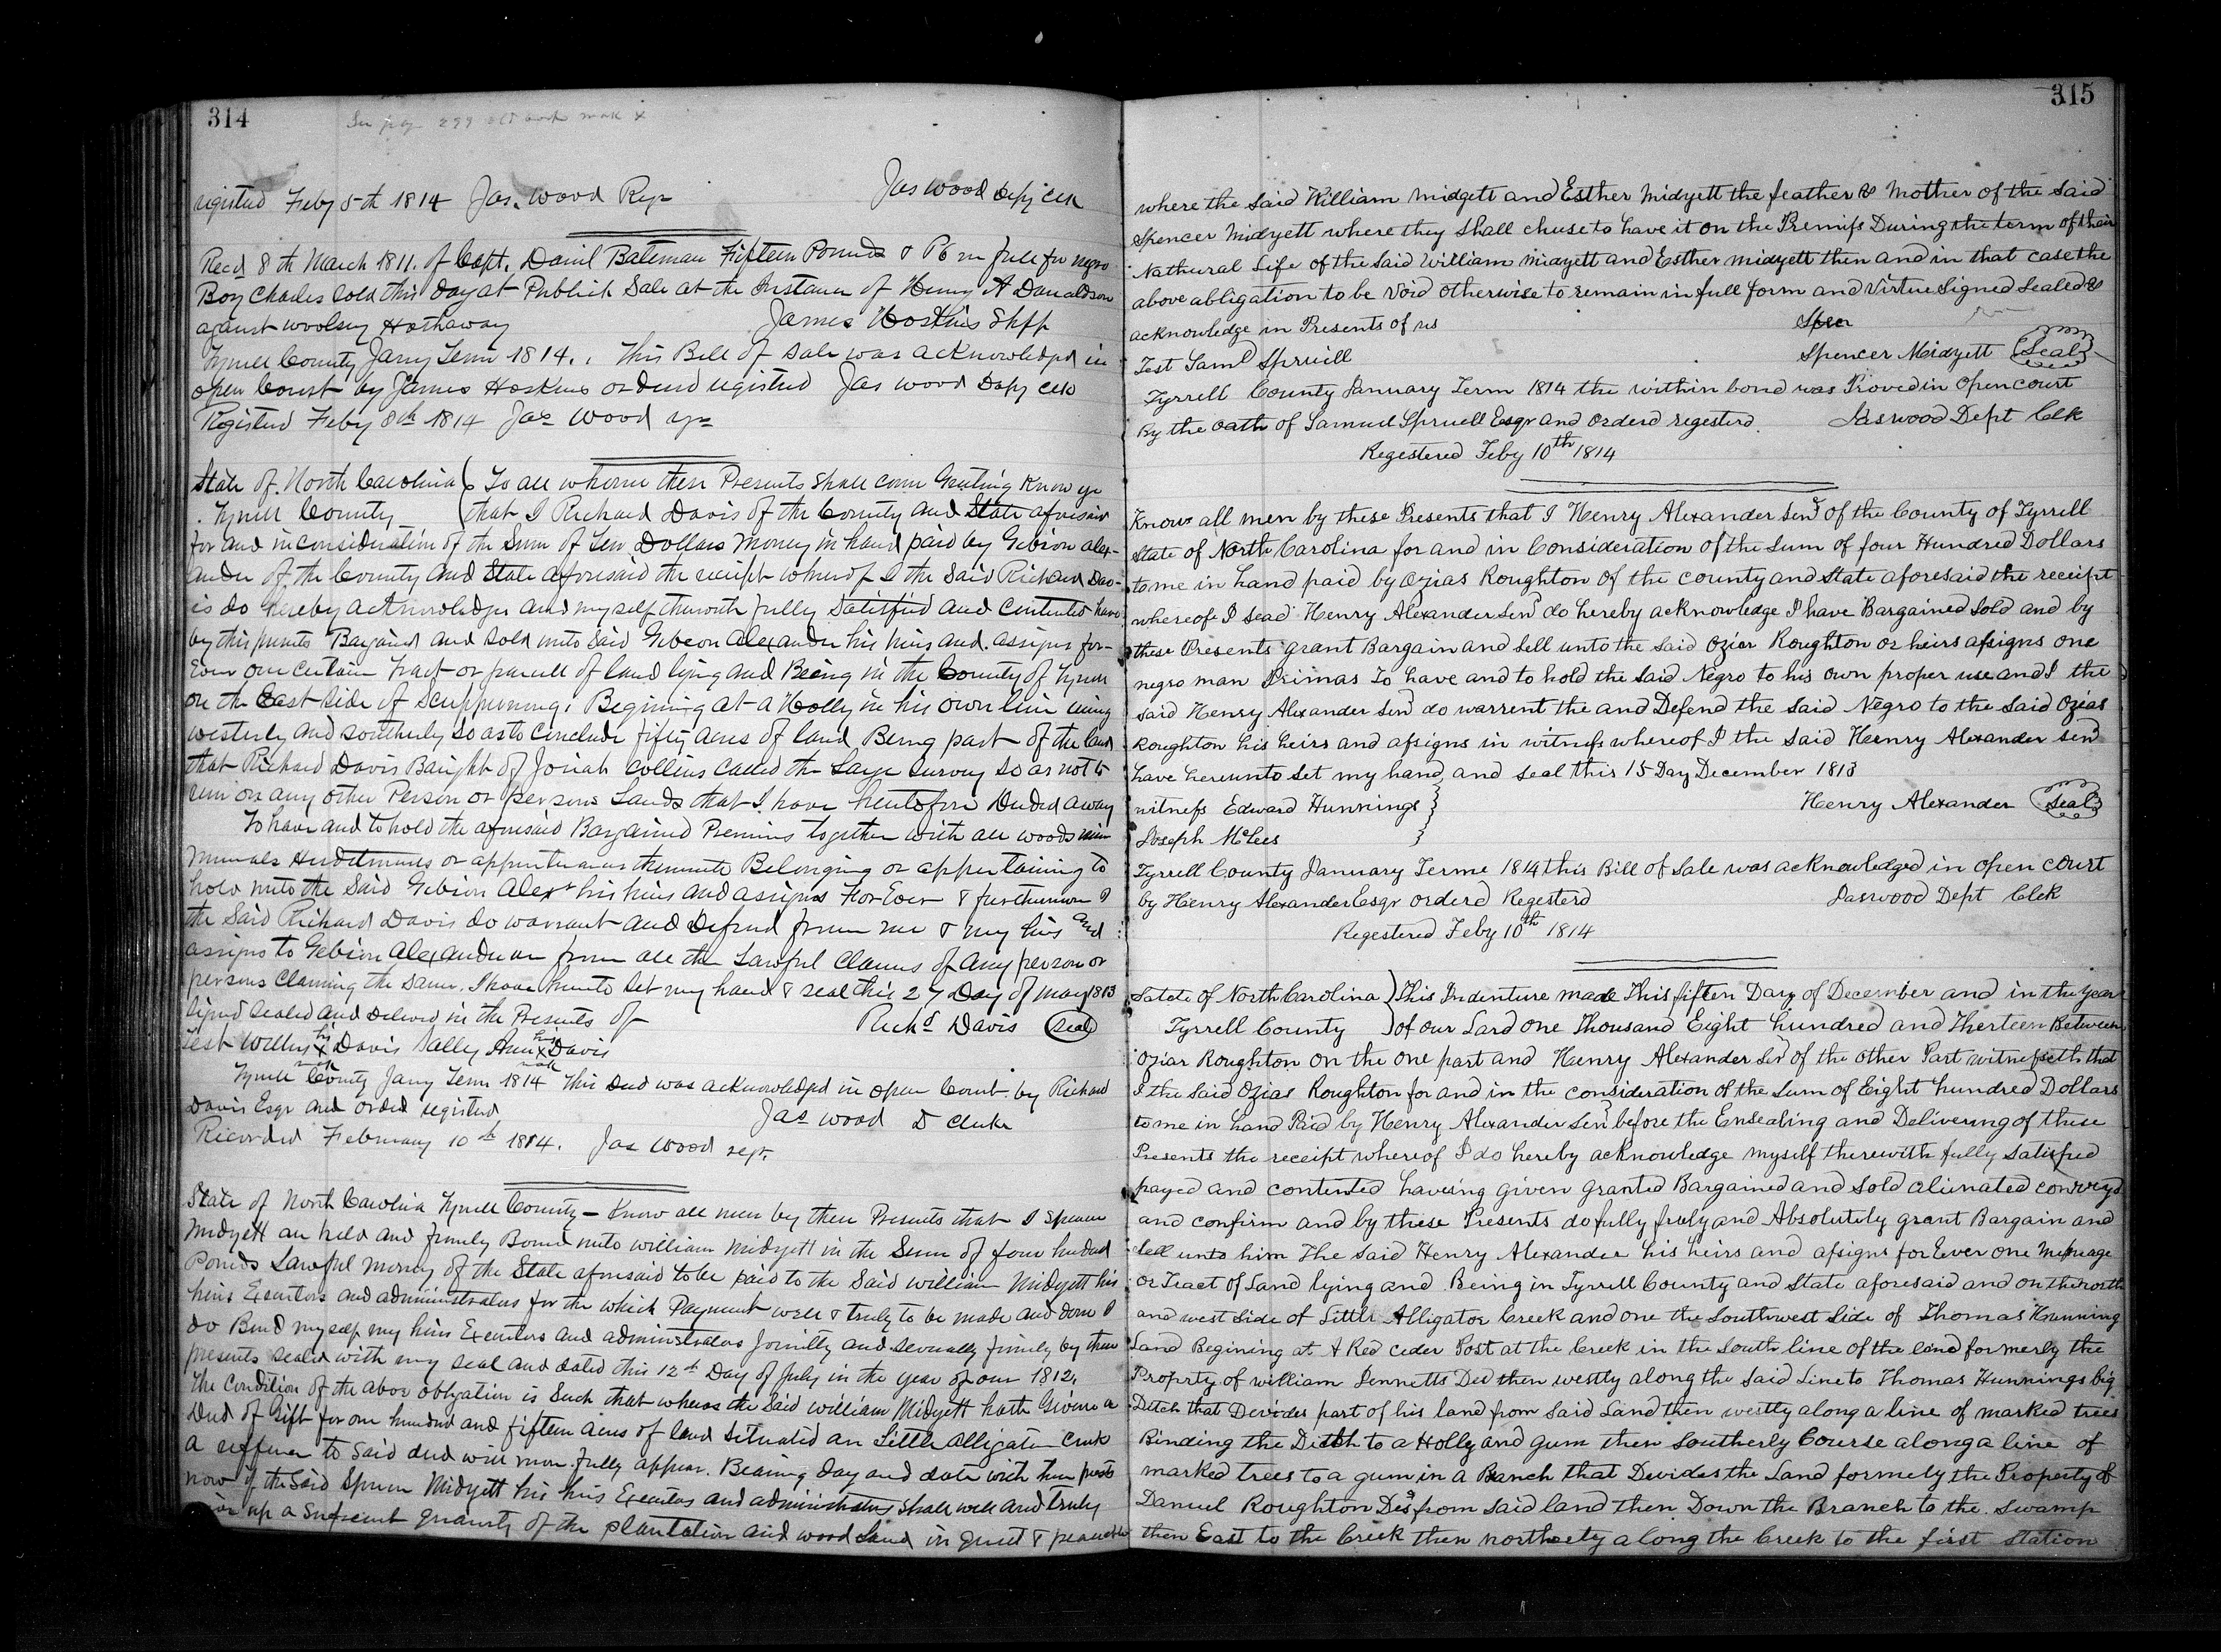 314
registed Feby 5th 1814 Jas. Wood Regr Jas Wood Depy Clk
Recd 8th March 1811. of Capt. Daniel Bateman Fifteen Pounds & P6 in full for negro
Boy Charles sold this day at Publick Sale at the Instance of Henry A Donaldson
against Woolsey Hathaway James Hoskins Shff
Tyrrell County Jany Term 1814. . This Bill of Sale was acknowledged in
open Court by James Hoskins ordered registed Jas Wood Depy Clk
Registed Feby 8th 1814 Jas Wood
State of North Carolina To all whome these Presents shall come Greeting Know ye
Tyrrell County that I Richard Davis of the County and State aforesaid
for and in consideration of the Sum of Ten Dollars Money in hand paid by Gebion Alex-
ander of the County and State aforesaid the receipt whereof I the Said Richard Dav-
is do hereby acknowledge and myself therewith fully Satisfied and Contented have
by this presents Bargained and Sold unto Said Gebeon Alexander his heirs and assigns for-
Ever one certain Tract or parcell of land lying and Being in the County of Tyrrell
on the East side of Scuppernong; Begining at a Holly in his own line
westerly and southerly so as to Conclude fifty acres of land Being part of the land
that Richard Davis Baught of Josiah Collins called the Large Survey so as not to
run on any other Person or persons Lands that I have heretofore Deeded away
To have and to hold the aforesaid Bargained Premises together with all woods
Minerals Herditments or appurtenances thereunto Belonging or appertaining to
hold unto the Said Gebion Alexr his heirs and assigns For Ever & furthermore I
the Said Richard Davis do warrant and Defend from me & my heirs and
assigns to Gebion Alexander from all the Lawful Claims of any person or
persons Claiming the Same. I have hereunto Set my hand & seal this 27 Day of may 1813
Signed Sealed and Deliverd in the Presents of Richd Davis Seal
Test his X mark Davis Sally Ann X mark Davis
Tyrrell County Jany Term 1814 This Deed was acknowledged in open Court by Richard
Davis Esqr and orded registed Jas Wood D Clerk
Recorded February 10th 1814. Jas Wood
State of North Carolina Tyrrell County - Know all men by these Presents that I Spencer
Midyett am held and firmly Bound unto William Midyett in the Sum of four hundred
Pounds Lawful Money of the State aforesaid to be paid to the Said William Midyett his
heirs Executors and administrators for the which Payment well & truly to be made and done I
do Bind myself my heirs Executors and administrators Jointly and severally firmly by these
presents sealed with my seal and dated this 12th Day of July in the year of our 1812.
The Condition of the above obligation is Such that whereas the Said William Midyett hath Given a
Deed of Gift for one hundred and fifteen acres of land Situated on Little Alligator Creek
a refference to Said deed will more fully appear. Bearing day and date with these
now if the Said Spencer Midyett his heirs Executors and administrators Shall well and truly
up a Sufficient quantity of the plantation and wood Land in quiet & peaceable
315
where the Said William Midgett and Esther Midyett the feather & Mother of the Said
Spencer Midyett where they Shall chuse to have it on the Premifs During the term of their
Nathural Life of the Said William Midyett and Esther Midyett then and in that case the
above abligation to be Void otherwise to remain in full form and Virtue Signed Sealed &
acknowledge in Presents of us Spen
Test Saml Spruill Spencer Midyett Seal
Tyrrell County January Term 1814 the within bond was Proved in Open court
By the oath of Samuel Spruell Esqr and orderd regesterd. Jaswood Dept Clk
Regestered Feby 10th 1814
Know all men by these Presents that I Henry Alexander Senr of the County of Tyrrell
State of North Carolina for and in Consideration of the Sum of four Hundred Dollars
to me in hand paid by Ozias Roughton of the county and State aforesaid the receipt
whereofe I Sead Henry Alexander Senr do hereby acknowledge I have Bargained Sold and by
these Presents grant Bargain and Sell unto the Said Ozias Roughton or heirs afsigns one
negro man Primas To have and to hold the Said Negro to his own proper use and I the
Said Henry Alexander Senr do warrent the and Defend the Said Negro to the Said Ozias
Roughton his heirs and afsigns in witnefs whereof I the Said Heenry Alexander senr
have hereunto Set my hand and seal this 15 Day December 1813
witnefs Edward Hunnings Henry Alexander Seal
Joseph McLees
Tyrrell County January Terme 1814 this Bill of Sale was acknowledged in open court
by Henry Alexander Esqr orderd Regesterd Jaswood Dept Clek
Regestered Feby 10th 1814
Satate of North Carolina This Indenture made This fiften Day of December and in the Year
Tyrrell County of our Lard one Thousand Eight hundred and Therteen Between
Oziar Roughton on the one part and Henry Alexander Senr of the other Part witnefseth that
I the Said Ozias Roughton for and in the consideration of the Sum of Eight hundred Dollars
to me in hand Paid by Henry Alexander Senr before the Ensealing and Delivering of these
Presents the receipt whereof I do hereby acknowledge myself therewith fully Satisfied
payed and contented haveing given granted Bargained and Sold alienated conveyd
and confirm and by these Presents do fully freely and Absolutely grant Bargain and
Sell unto him The Said Henry Alexander his heirs and afsigns for Ever one Mefsuage
or Tract of Land lying and Being in Tyrrell County and State aforesaid and on the north
and west Side of Little Alligator Creek and one the Southwest Side of Thomas Hunning
Land Begining at A Red ceder Post at the Creek in the South line of the land formerly the
Proprty of William Jennetts Ded then westly along the Said Line to Thomas Hunnings big
Ditch that Devides part of his land from Said Land then westly along a line of marked trees
Binding the Ditch to a Holly and gum then Southerly Course along a line of
marked trees to a gum in a Branch that Devides the Land formely the Property of
Daniel Roughton Desd from Said land then Down the Branch to the Swamp
then East to the Creek then northeely along the Creek to the first Station